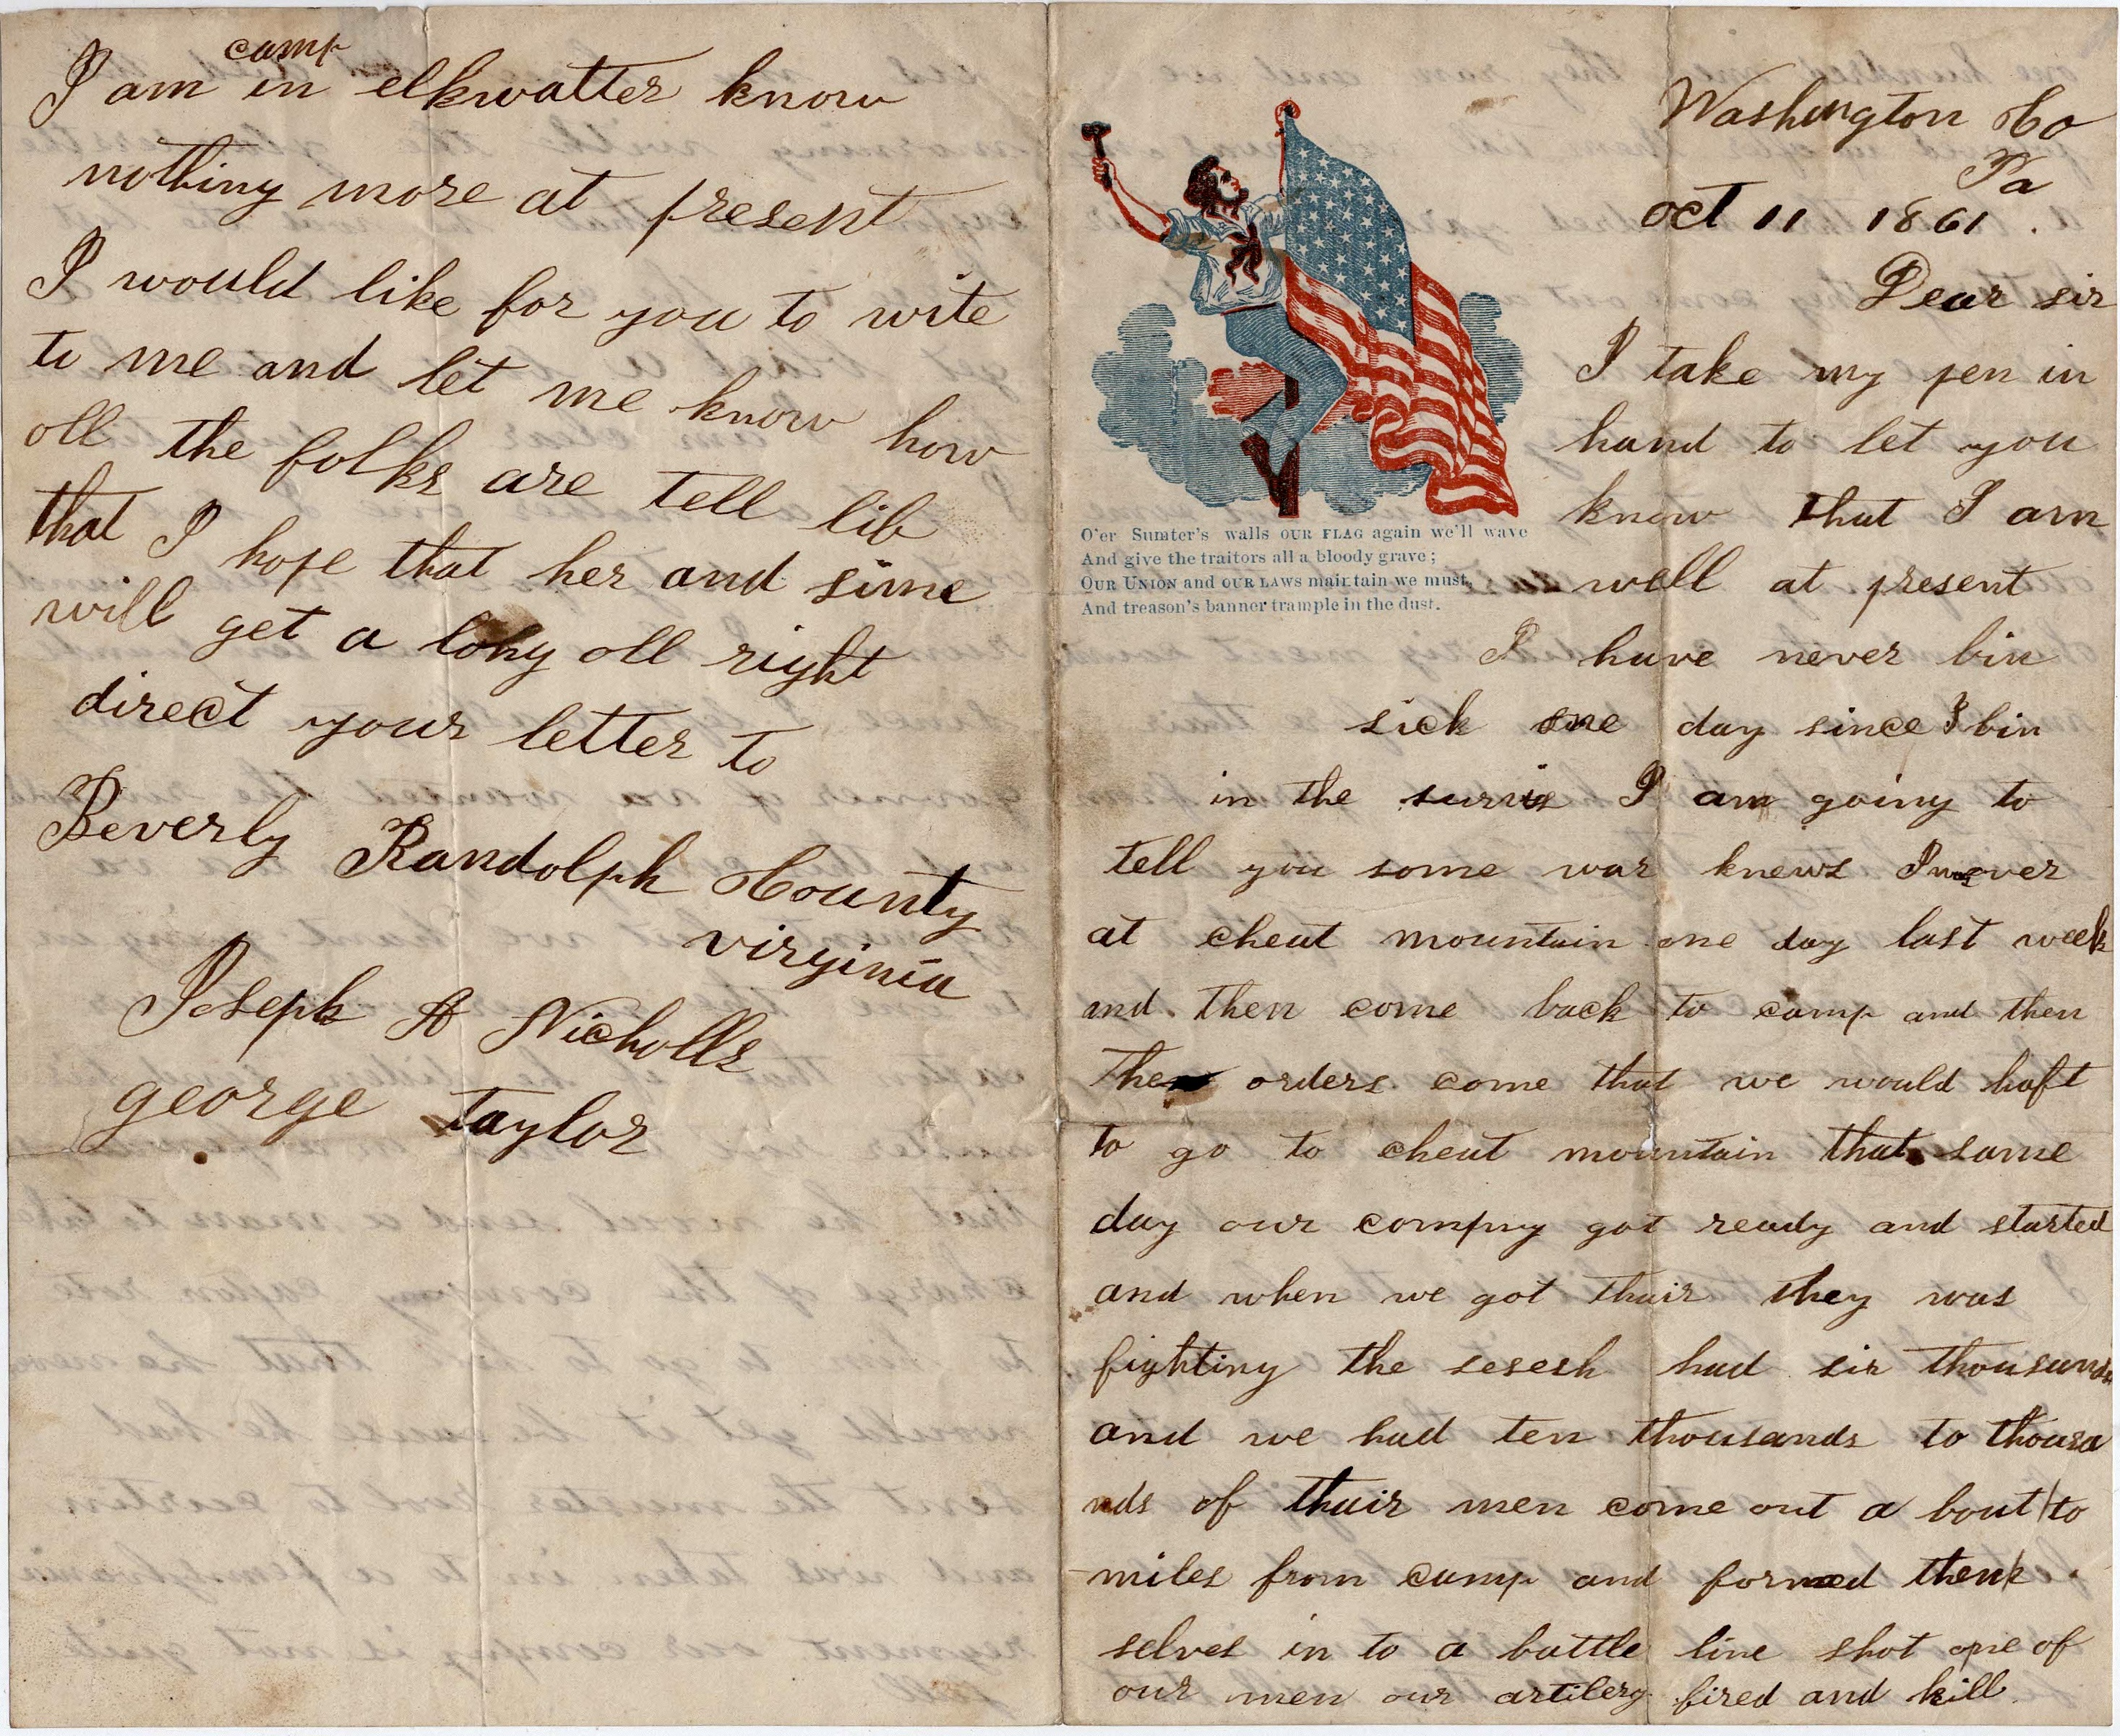 camp
I am in elkwatter know
nothing more at present
I would like for you to wite
to me and let me know how
oll the folks are tell lib
that I hope that her and sime
will get a long oll right
direct your letter to
Beverly Randolph County
virginia
Joseph A Nicholls
george taylor
Washington Co
Pa
oct 11 1861.
Dear sir
I take my pen in
hand to let you
know that I am
well at present
I have never bin
sick one day since I bin
in the I am going to
tell you some war knews I over
at cheat mountain one day last week
and then come back to camp and then
the orders come that we would haft
to go to cheat mountain that same
day our compny got ready and started
and when we got thair they was
fighting the sesesh had six thousands
and we had ten thousands to thousa
nds of thair men come out a bout to
miles from camp and formed them
selves in to a battle line shot one of
our men our artilery fired and kill
O'er Sumter's walls OUR FLAG again we'll wave
And give the traitors all a bloody grave;
OUR UNION and OUR LAWS maintain we must,
And treason's banner trample in the dust.